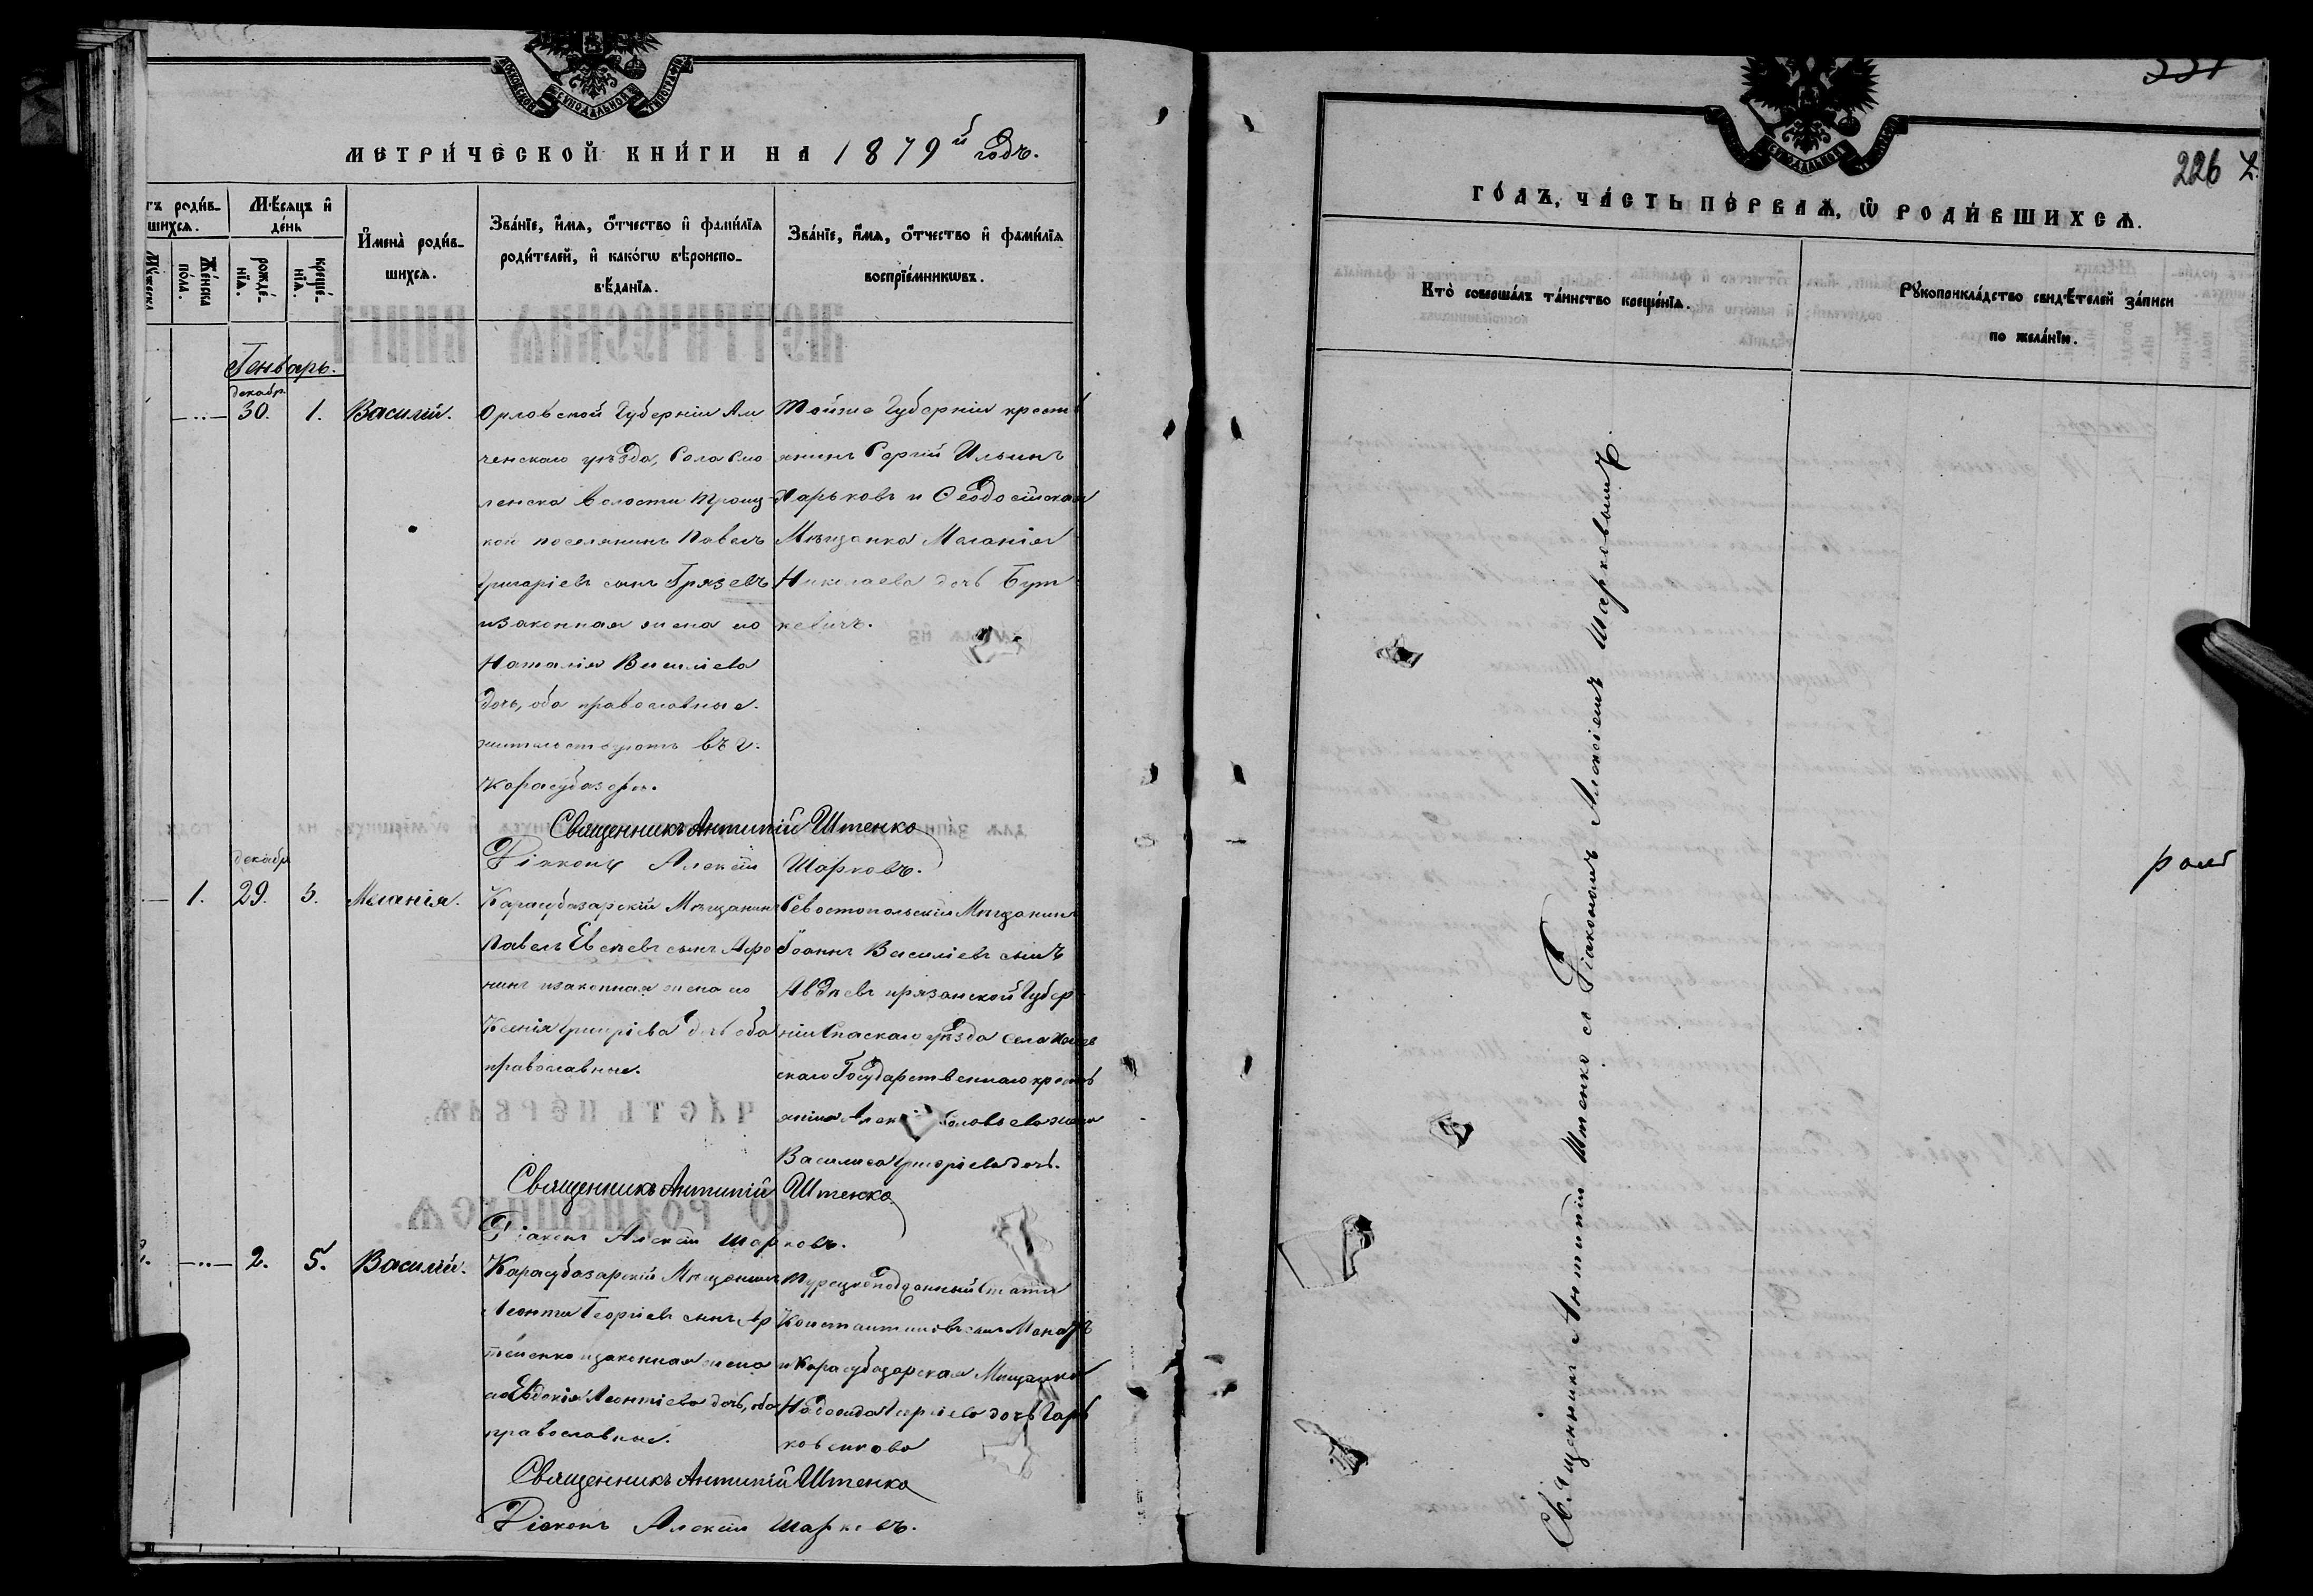 МОСКОВСКОЙ СѴНОДАЛЬНОЙ ТИПОГРАФІИ
МЕТРИ́ЧЕСКОЙ КНИ́ГИ НА 1879й годъ.
роди́в-
шихсѧ.
Мѣ́сѧцъ и҆
де́нь
И҆мена̀ роди́в-
шихсѧ.
Зва́нїе, и҆́мѧ, ѻ҆́тчество и҆ фами́лїѧ
роди́телей, и҆ како́гѡ вѣроиспо-
вѣ́данїѧ.
Зва́нїе, и҆́мѧ, ѻ҆́тчество и҆ фами́лїѧ
воспрїе́мникѡвъ.
Му́жеска
Же́нска
по́ла.
рожде́-
нїѧ.
креще́-
нїѧ.
Генварь.
декабр.
30.
1.
Василій.
Орловской Губерніи
ченскаго уѣзда, Села Смо
ленска волости Троиц
кой поселянинъ Павелъ
Григоріевъ сынъ Грязевъ
и законная жена его
Наталія Василіева
дочь, оба православные.
жительствуютъ въ г.
Карасубазарѣ.
Тойже Губерніи кресть
янинъ Сергій Ильинъ
Харьковъ и Ѳеодосійская
Мѣщанка Меланія
Николаева дочь Бут
кевичъ.
Священникъ Антипій Штенко
Діаконъ Алексій Шарковъ.
1.
декабр
29.
3.
Меланія.
Карасубазарскій Мѣщанинъ
Павелъ Евсѣевъ сынъ Афо
нинъ и законная жена его
Ксенія Григоріева дочь оба
православные.
Севостопольскій Мѣщанинъ
Іоаннъ Василіевъ сынъ
Авдѣевъ и рязанской Губер
ніи Спаскаго уѣзда села
скаго Государственнаго кресть
янина жена
Василиса Григоріева дочь.
Священникъ Антипій Штенко
Діаконъ Алексій Шарковъ.
2.
5.
Василій.
Карасубазарскій Мѣщанинъ
Леонтій Георгіевъ сынъ Ар
теменко и законная жена
его Евдокія Леонтіева дочь, оба
православные.
Турецкоподданный
Константиновъ сынъ
и Карасубазарская Мѣщанка
Надежда дочь Гарь
ковенкова
Священникъ Антипій Штенко
Діаконъ Алексій Шарковъ.
226
ГО́ДЪ, ЧА́СТЬ ПЕ́РВАѦ, Ѽ РОДИ́ВШИХСѦ.
Кто̀ соверша́лъ та́инство креще́нїѧ.
Рꙋкоприкла́дство свидѣ́телей за́писи
по жела́нїю.
Священникъ Антипій Штенко съ Діакономъ Алексіемъ Шарковымъ.